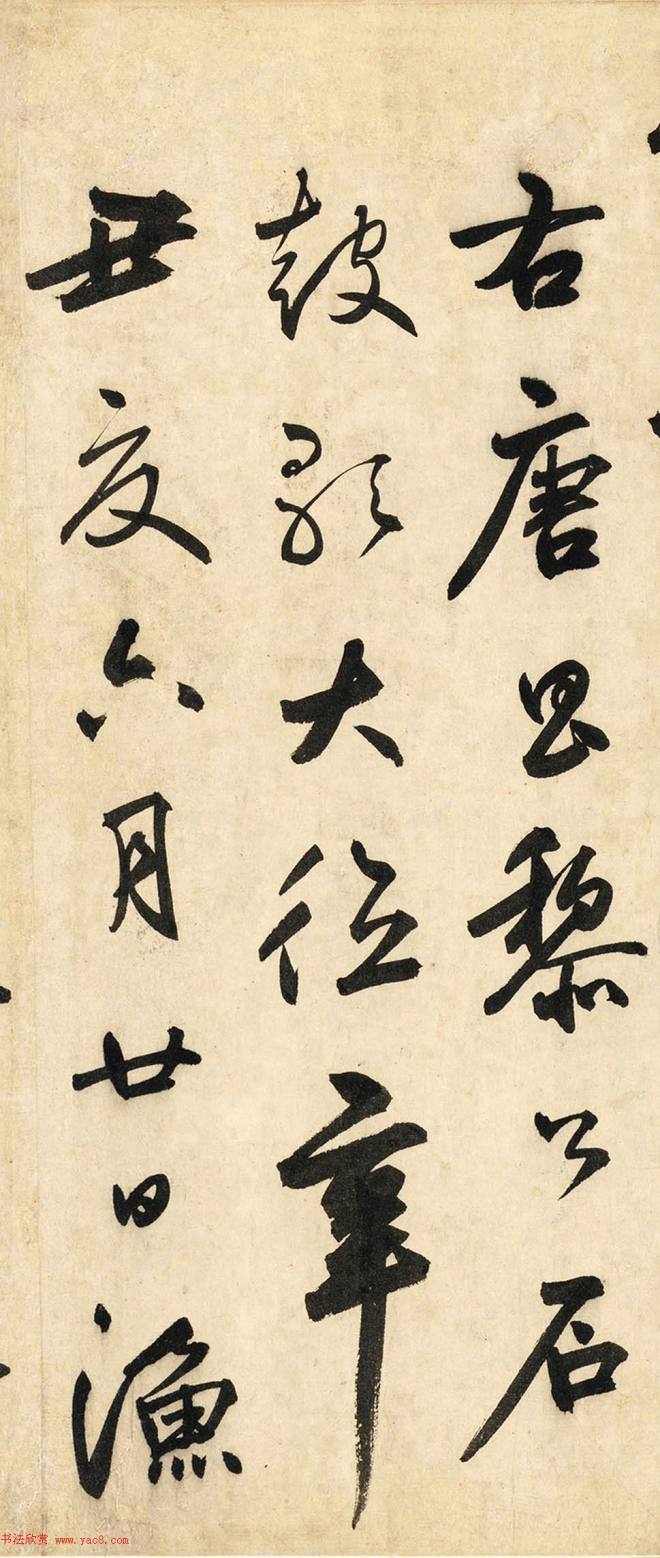 右唐昌黎公石
鼓歌大德辛
丑夏六月廿日漁
书法欣赏 www.yac8.com